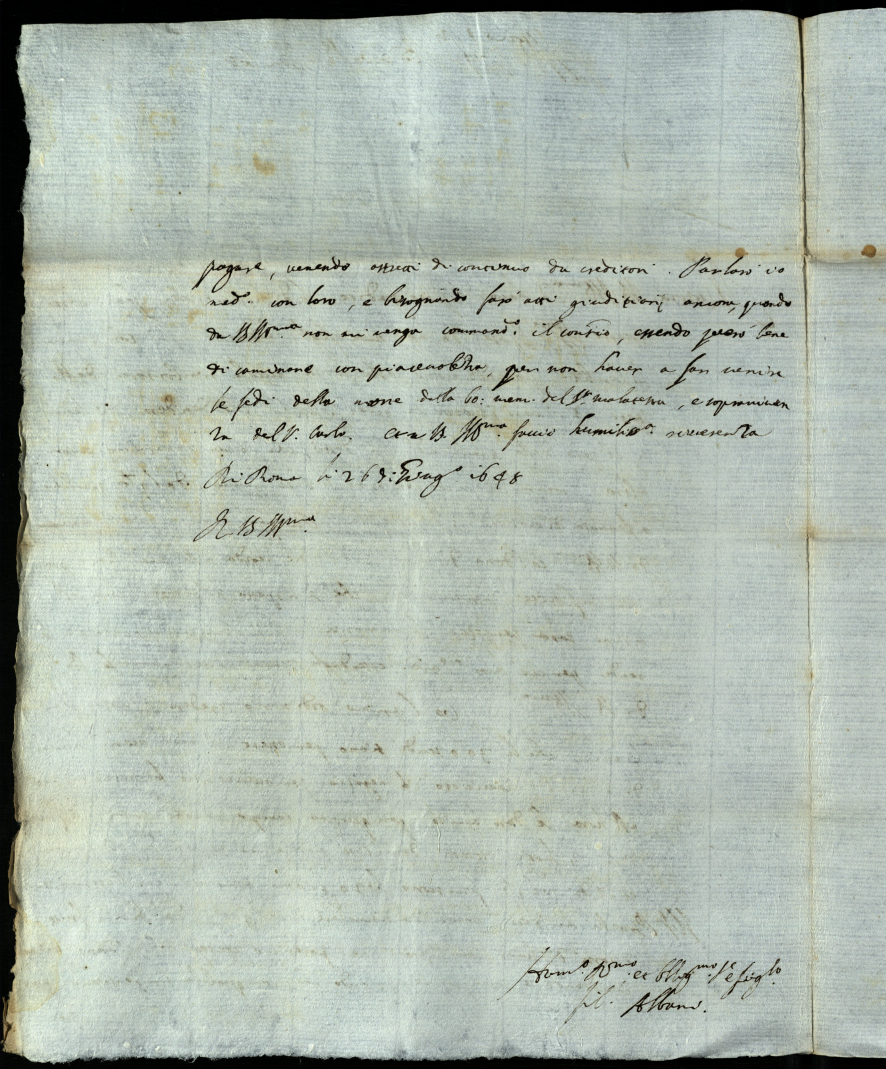 pagare, venendo astretti di continuo da creditori. Parlarò io
med.º con loro, e bisognando farò atti giuditiarij ancora, quando
da V.S. Ill.ma non mi venga command.º il contr.io, essendo però bene
di caminare con piacevolezza, per non haver a far venire
le fedi della morte della bo: mem. del S.r Malatesta, e sopraviven
za del S. Carlo. Et a V.S. Ill.ma faccio humiliss.a riverenza
Di Roma li 26 di Giug.º 1648
Di V.S. Ill.ma
Hum.º et Oblig.mo S.re
Albani.